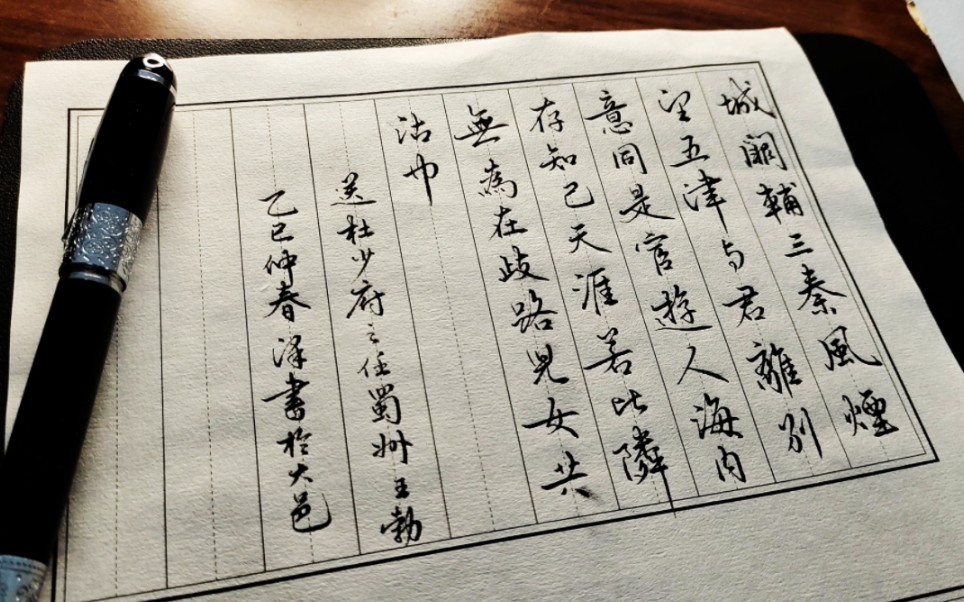 城闕輔三秦風煙
望五津与君離別
意同是宦遊人海内
存知己天涯若比隣
無為在歧路兒女共
沾巾
送杜少府之任蜀州王勃
乙巳仲春泽書於大邑